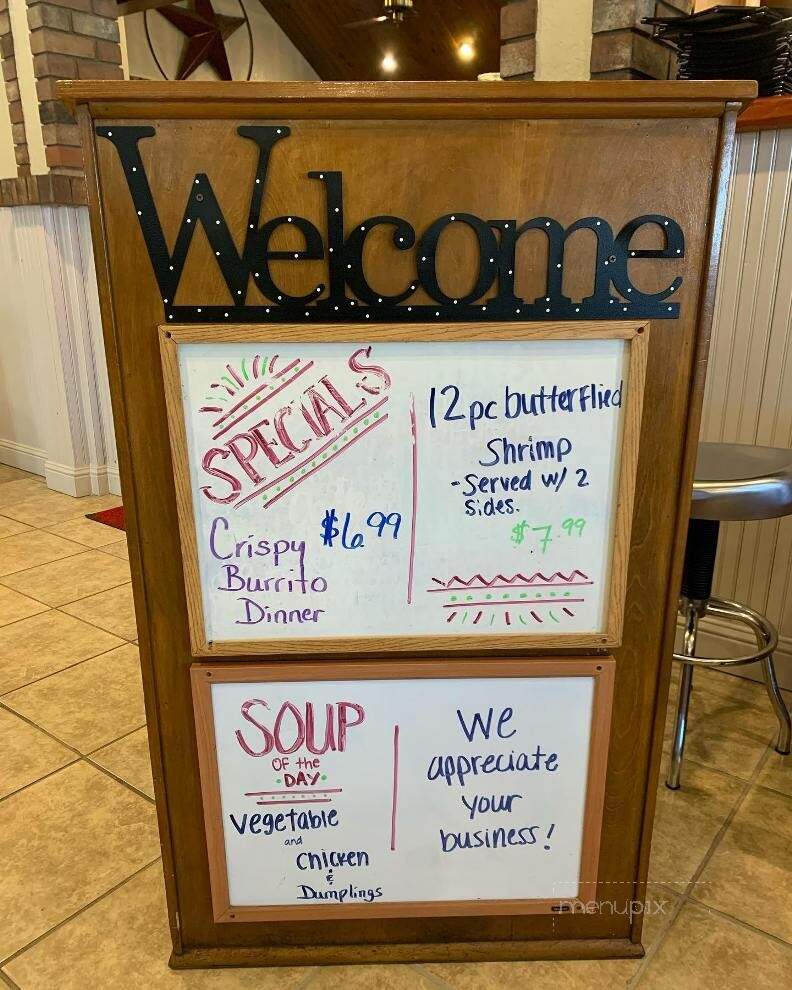 Welcome
SPECIALS
Crispy $6.99
Burrito
Dinner
12pc butterflied
Shrimp
- Served w/ 2
sides.
$7.99
SOUP
OF the
DAY
Vegetable
and
Chicken
&
Dumplings
We
appreciate
your
business!
menupix